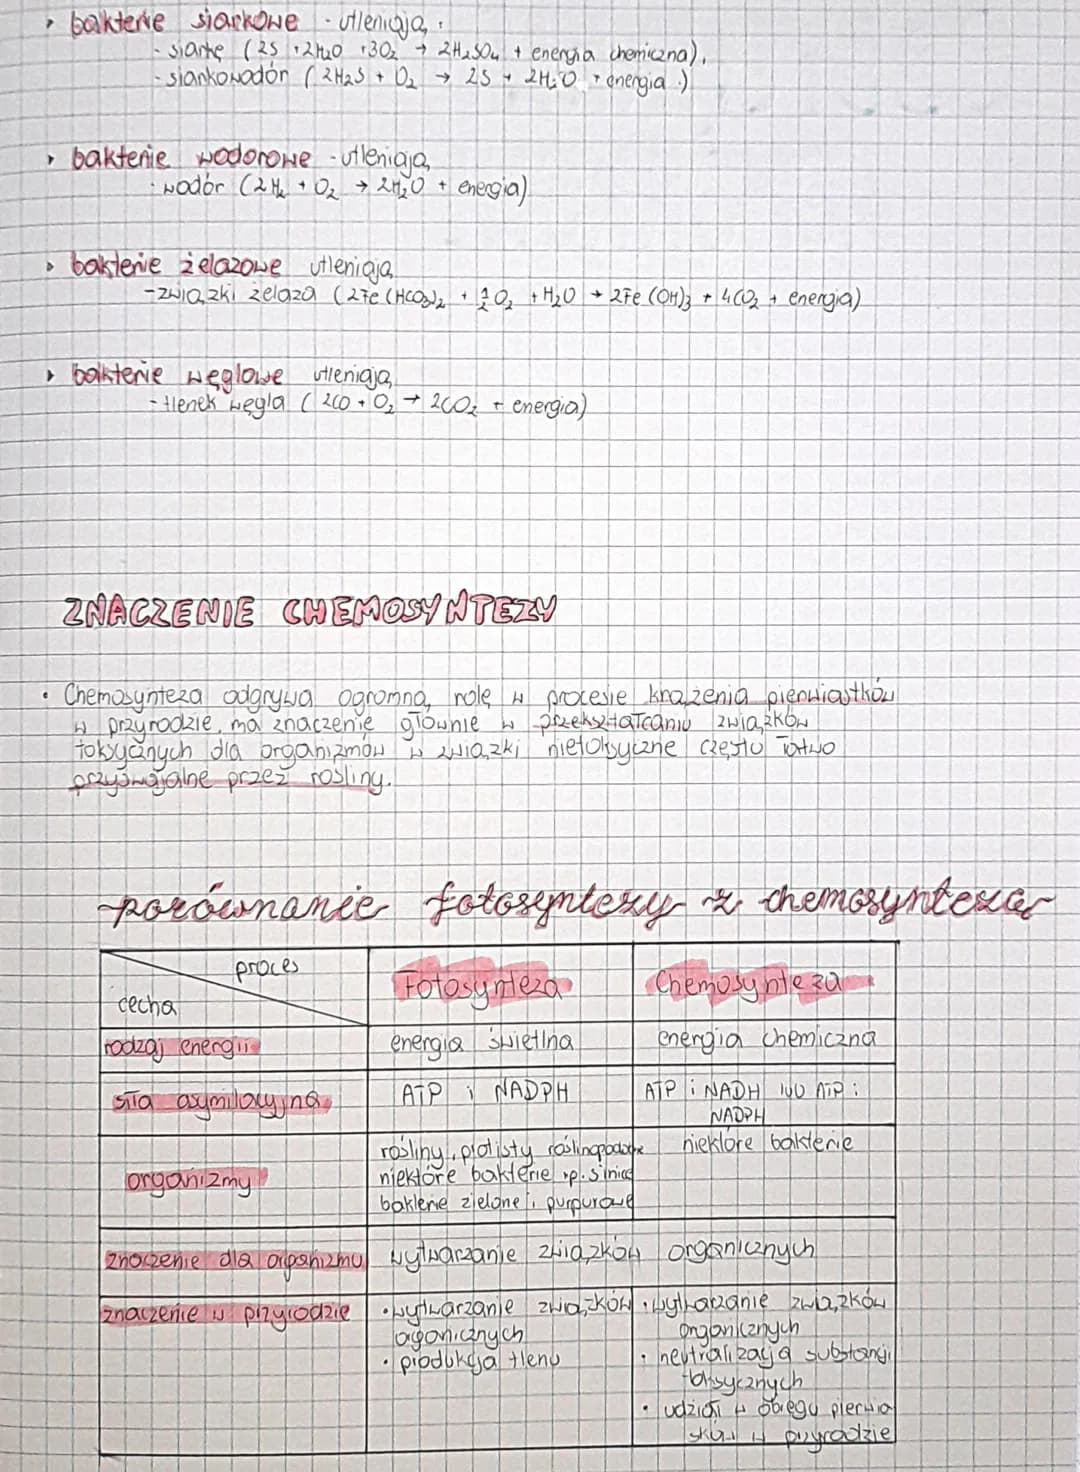 bakterie siarkowe - utleniają:
- siarkę (2S + 2H₂O + 3O₂ → 2H₂SO₄ + energia chemiczna),
- siarkowodór (2H₂S + O₂ → 2S + 2H₂O + energia)
bakterie wodorowe - utleniają
- wodór (2H₂ + O₂ → 2H₂O + energia)
bakterie żelazowe utleniają
- związki żelaza (2Fe(HCO₃)₂ + ½O₂ + H₂O → 2Fe(OH)₃ + 4CO₂ + energia)
bakterie węglowe utleniają
- tlenek węgla (2CO + O₂ → 2CO₂ + energia)
ZNACZENIE CHEMOSYNTEZY
• Chemosynteza odgrywa ogromną rolę w procesie krążenia pierwiastków
w przyrodzie, ma znaczenie głównie w przekształcaniu związków
toksycznych dla organizmów w związki nietoksyczne często łatwo
przyswajalne przez rośliny.
porównanie fotosyntezy z chemosyntezą
proces
cecha
Fotosynteza
Chemosynteza
rodzaj energii
energia świetlna
energia chemiczna
siła asymilacyjna
ATP i NADPH
ATP i NADH lub ATP i
NADPH
organizmy
rośliny, protisty roślinopodobne
niektóre bakterie np. sinice
bakterie zielone i purpurowe
niektóre bakterie
znaczenie dla organizmu
wytwarzanie związków organicznych
znaczenie w przyrodzie
• wytwarzanie związków
organicznych
• produkcja tlenu
• wytwarzanie związków
organicznych
• neutralizacja substancji
toksycznych
• udział w obiegu pierwia
sków w przyrodzie